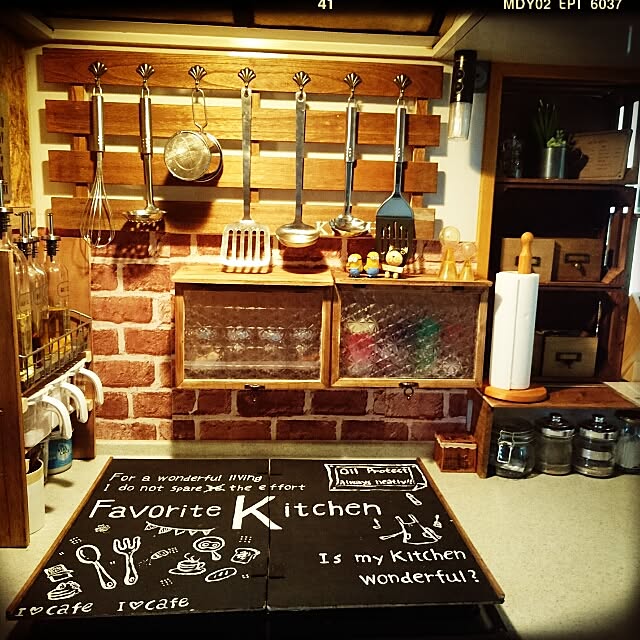 41
MDY02 EPI 6037
For a wonderful living
I do not spare the effort
Favorite Kitchen
Oil Protect
Always neatly!!
Is my Kitchen
wonderful?
I ♡ cafe I ♡ cafe